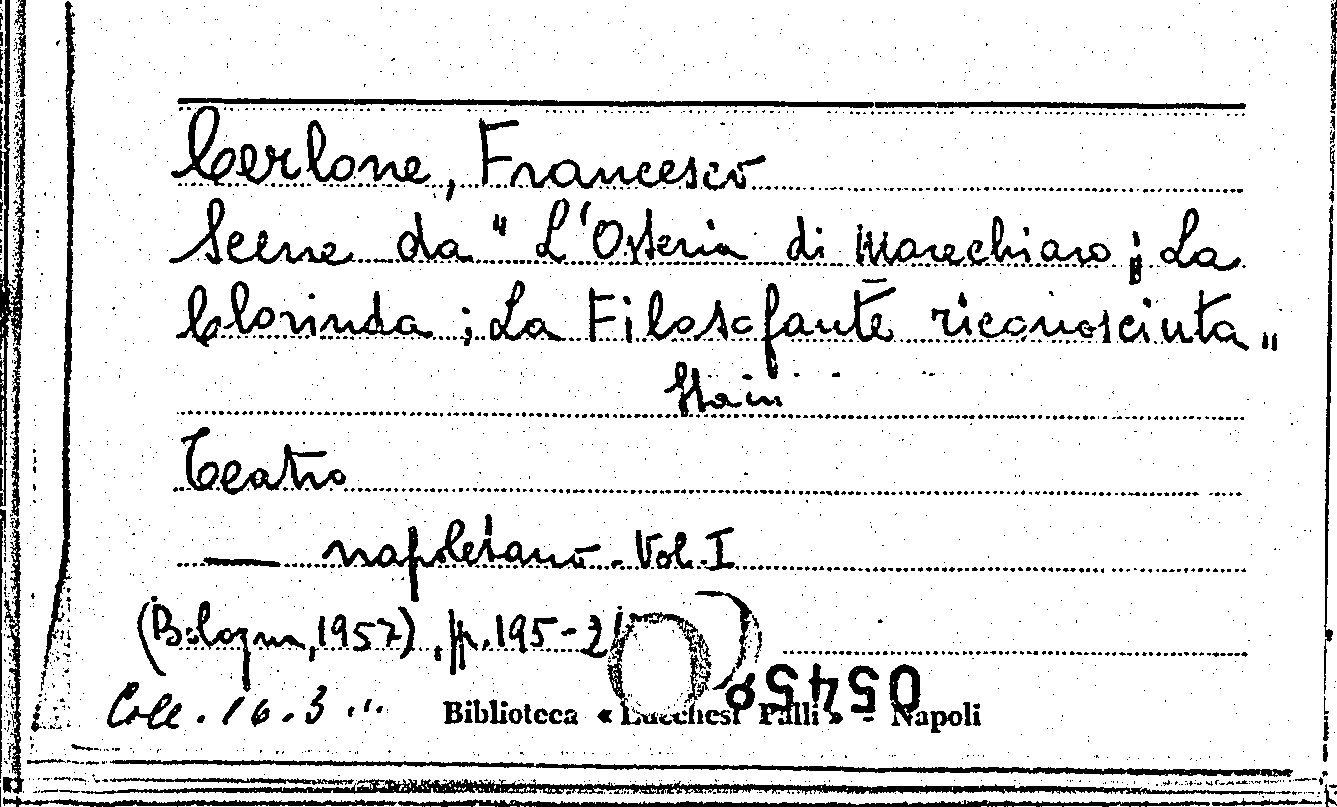 Cerlone, Francesco
Scene da " L'Osteria di Marechiaro ; La
Clorinda ; La Filosofante riconosciuta "
Sta in
Teatro
— napoletano - Vol. I
(Bologna, 1957), pp. 195-2
Coll. 16.3
Biblioteca « Lucchesi Palli » - Napoli